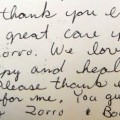 thank you
great care
Zorro. We lov
py and heal
lease thank
for me. You gu
Zorro &